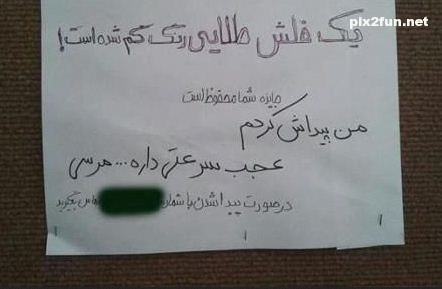 pix2fun.net
یک فلش طلایی رنگ گم شده است!
جایزه شما محفوظ است
من پیداش کردم
عجب سرعتی داره... مرسی
در صورت پیدا شدن با شماره تماس بگیرید